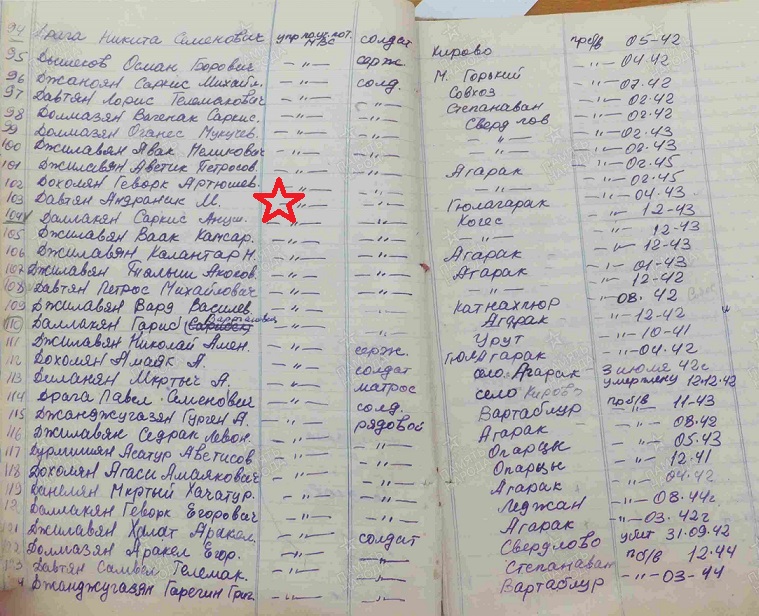 94 Драга Никита Семенович упр. полк. пот. МВС солдат Кирово пр б/в 05-42
95 Вышегов Осман Борович -"- серж. М. Горький -"- 04.42
96 Джаноян Саркис Михайл. -"- солд. Совхоз -"- 07.42
97 Давтян Лорис Телемакович -"- -"- Степанаван -"- 02.42
98 Долмазян Вагенак Саркис. -"- -"- Свердлов -"- 02.42
99 Долмазян Оганес Мукучев. -"- -"- -"- -"- 02.43
100 Джилавян Авак Меликович -"- -"- -"- -"- 02.43
101 Джилавян Аветик Петросов. -"- -"- Агарак -"- 02.45
102 Дохомян Геворк Артюшев. -"- -"- -"- -"- 02.45
103 Давтян Андраник М. -"- -"- Гюлагарак -"- 04-43
104 Даллакян Саркис -"- -"- Когес -"- 12-43
105 Джилавян Ваак Капсар. -"- -"- -"- -"- 12-43
106 Джилавян Калантар М. -"- -"- Агарак -"- 12-43
107 Джилавян Акопов. -"- -"- Агарак -"- 01-43
108 Давтян Петрос Михайлович -"- -"- -"- -"- 12-42
109 Джилавян Вард Василев. -"- -"- Катнахпюр -"- 08.42
110 Даллакян Гарис -"- -"- Агарак -"- 12-42
111 Джилавян Николай Амен. -"- серж. Урут -"- 10-41
112 Дохомян Амаяк А. -"- солдат Гюлагарак -"- 04.42
113 Диланян Мкртыч А. -"- матрос село Агарак 3 июля 42г
114 Драга Павел Семенович -"- солд. село Кирово умер в плену 12.12.42
115 Джанджугазян Гурген А. -"- рядовой Вартаблур пр б/в 11-43
116 Джилавян Седрак Левон. -"- -"- Агарак -"- 08.42
117 Дурмишян Асатур Аветисов. -"- -"- Опарцы -"- 05.43
118 Дохомян Агаси Амаякович -"- -"- Опарцы -"- 12.41
119 Данелян Мкртыч Хачатур. -"- -"- Агарак -"- 04.42
12 Даллакян Геворк Егорович -"- -"- Леджан -"- 08.44г
121 Джилавян Халат Аракел. -"- солдат Агарак -"- 03.42г
Долмазян Аракел Егор. -"- -"- Свердлово убит 31.09.42
Давтян Самвел Телемак. -"- -"- Степанаван пр б/в 12.44
Джанджугазян Гарегин Григ. -"- -"- Вартаблур -"- 03-44